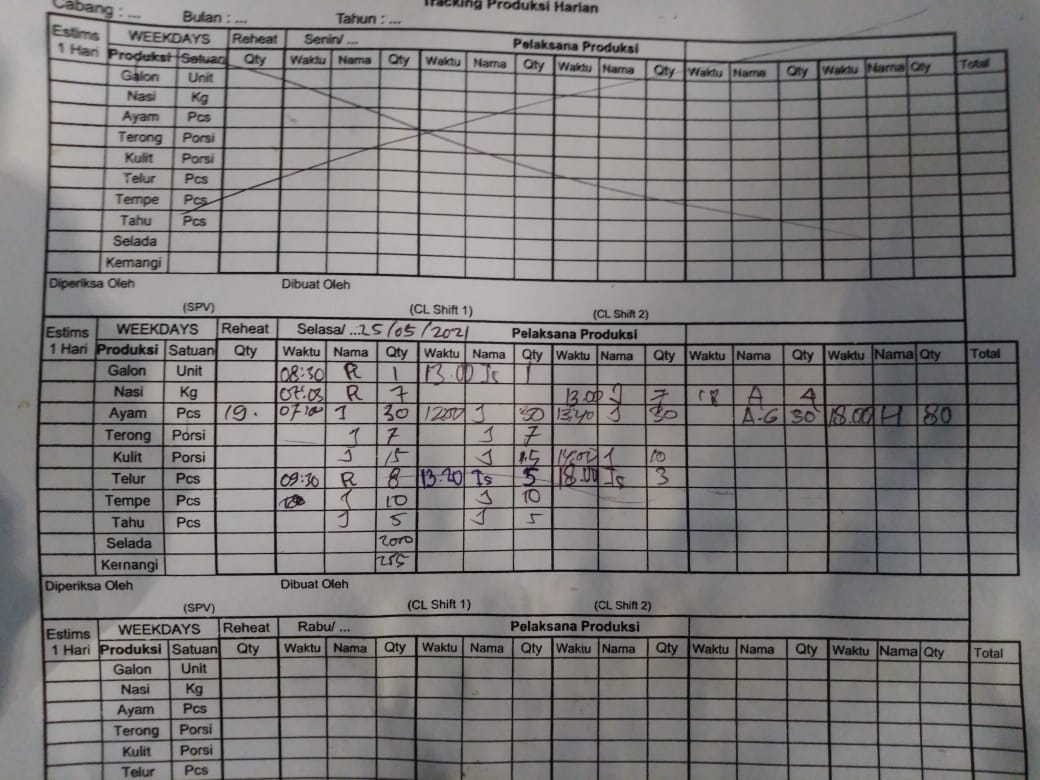 Tracking Produksi Harian
Cabang : ... Bulan : ... Tahun : ...
Estims WEEKDAYS Reheat Senin/ ... Pelaksana Produksi
1 Hari Produksi Satuan Qty Waktu Nama Qty Waktu Nama Qty Waktu Nama Qty Waktu Nama Qty Waktu Nama Qty Total
Galon Unit
Nasi Kg
Ayam Pcs
Terong Porsi
Kulit Porsi
Telur Pcs
Tempe Pcs
Tahu Pcs
Selada
Kemangi
Diperiksa Oleh Dibuat Oleh
(SPV) (CL Shift 1) (CL Shift 2)
Estims WEEKDAYS Reheat Selasa/ ...25/05/2021 Pelaksana Produksi
1 Hari Produksi Satuan Qty Waktu Nama Qty Waktu Nama Qty Waktu Nama Qty Waktu Nama Qty Waktu Nama Qty Total
Galon Unit 08:30 R 1 13.00 Is 1
Nasi Kg 07:03 R 7 13.00 J 7 18 A 4
Ayam Pcs 19. J 30 1200 J 30 13.40 J 30 A.G 30 18.00 H
Terong Porsi J 7 J 7
Kulit Porsi J 15 J 15 10
Telur Pcs 09:30 R 8 13.20 Is 5 18.00 Is 3
Tempe Pcs J 10 J 10
Tahu Pcs J 5 J 5
Selada 2000
Kemangi 255
Diperiksa Oleh Dibuat Oleh
(SPV) (CL Shift 1) (CL Shift 2)
Estims WEEKDAYS Reheat Rabu/ ... Pelaksana Produksi
1 Hari Produksi Satuan Qty Waktu Nama Qty Waktu Nama Qty Waktu Nama Qty Waktu Nama Qty Waktu Nama Qty Total
Galon Unit
Nasi Kg
Ayam Pcs
Terong Porsi
Kulit Porsi
Telur Pcs